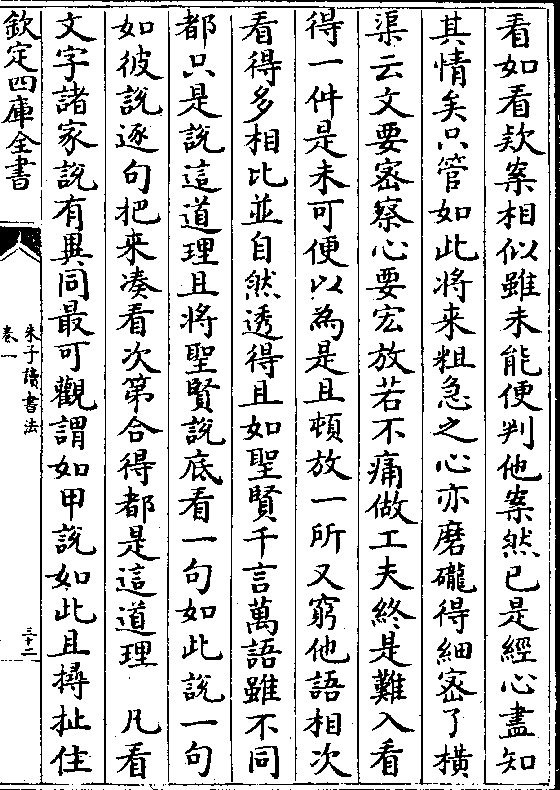 看如看欵案相似雖未能便判他案然已是經心盡知
其情矣只管如此將来粗急之心亦磨礲得細宻了横
渠云文要宻察心要宏放若不痛做工夫終是難入看
得一件是未可便以為是且頓放一所又窮他語相次
看得多相比並自然透得且如聖賢千言萬語雖不同
都只是說這道理且將聖賢說底看一句如此說一句
如彼說逐句把来凑看次第合得都是這道理　凡看
文字諸家說有異同最可觀謂如甲說如此且撏扯住
欽定四庫全書
朱子讀書法
卷一
三十二